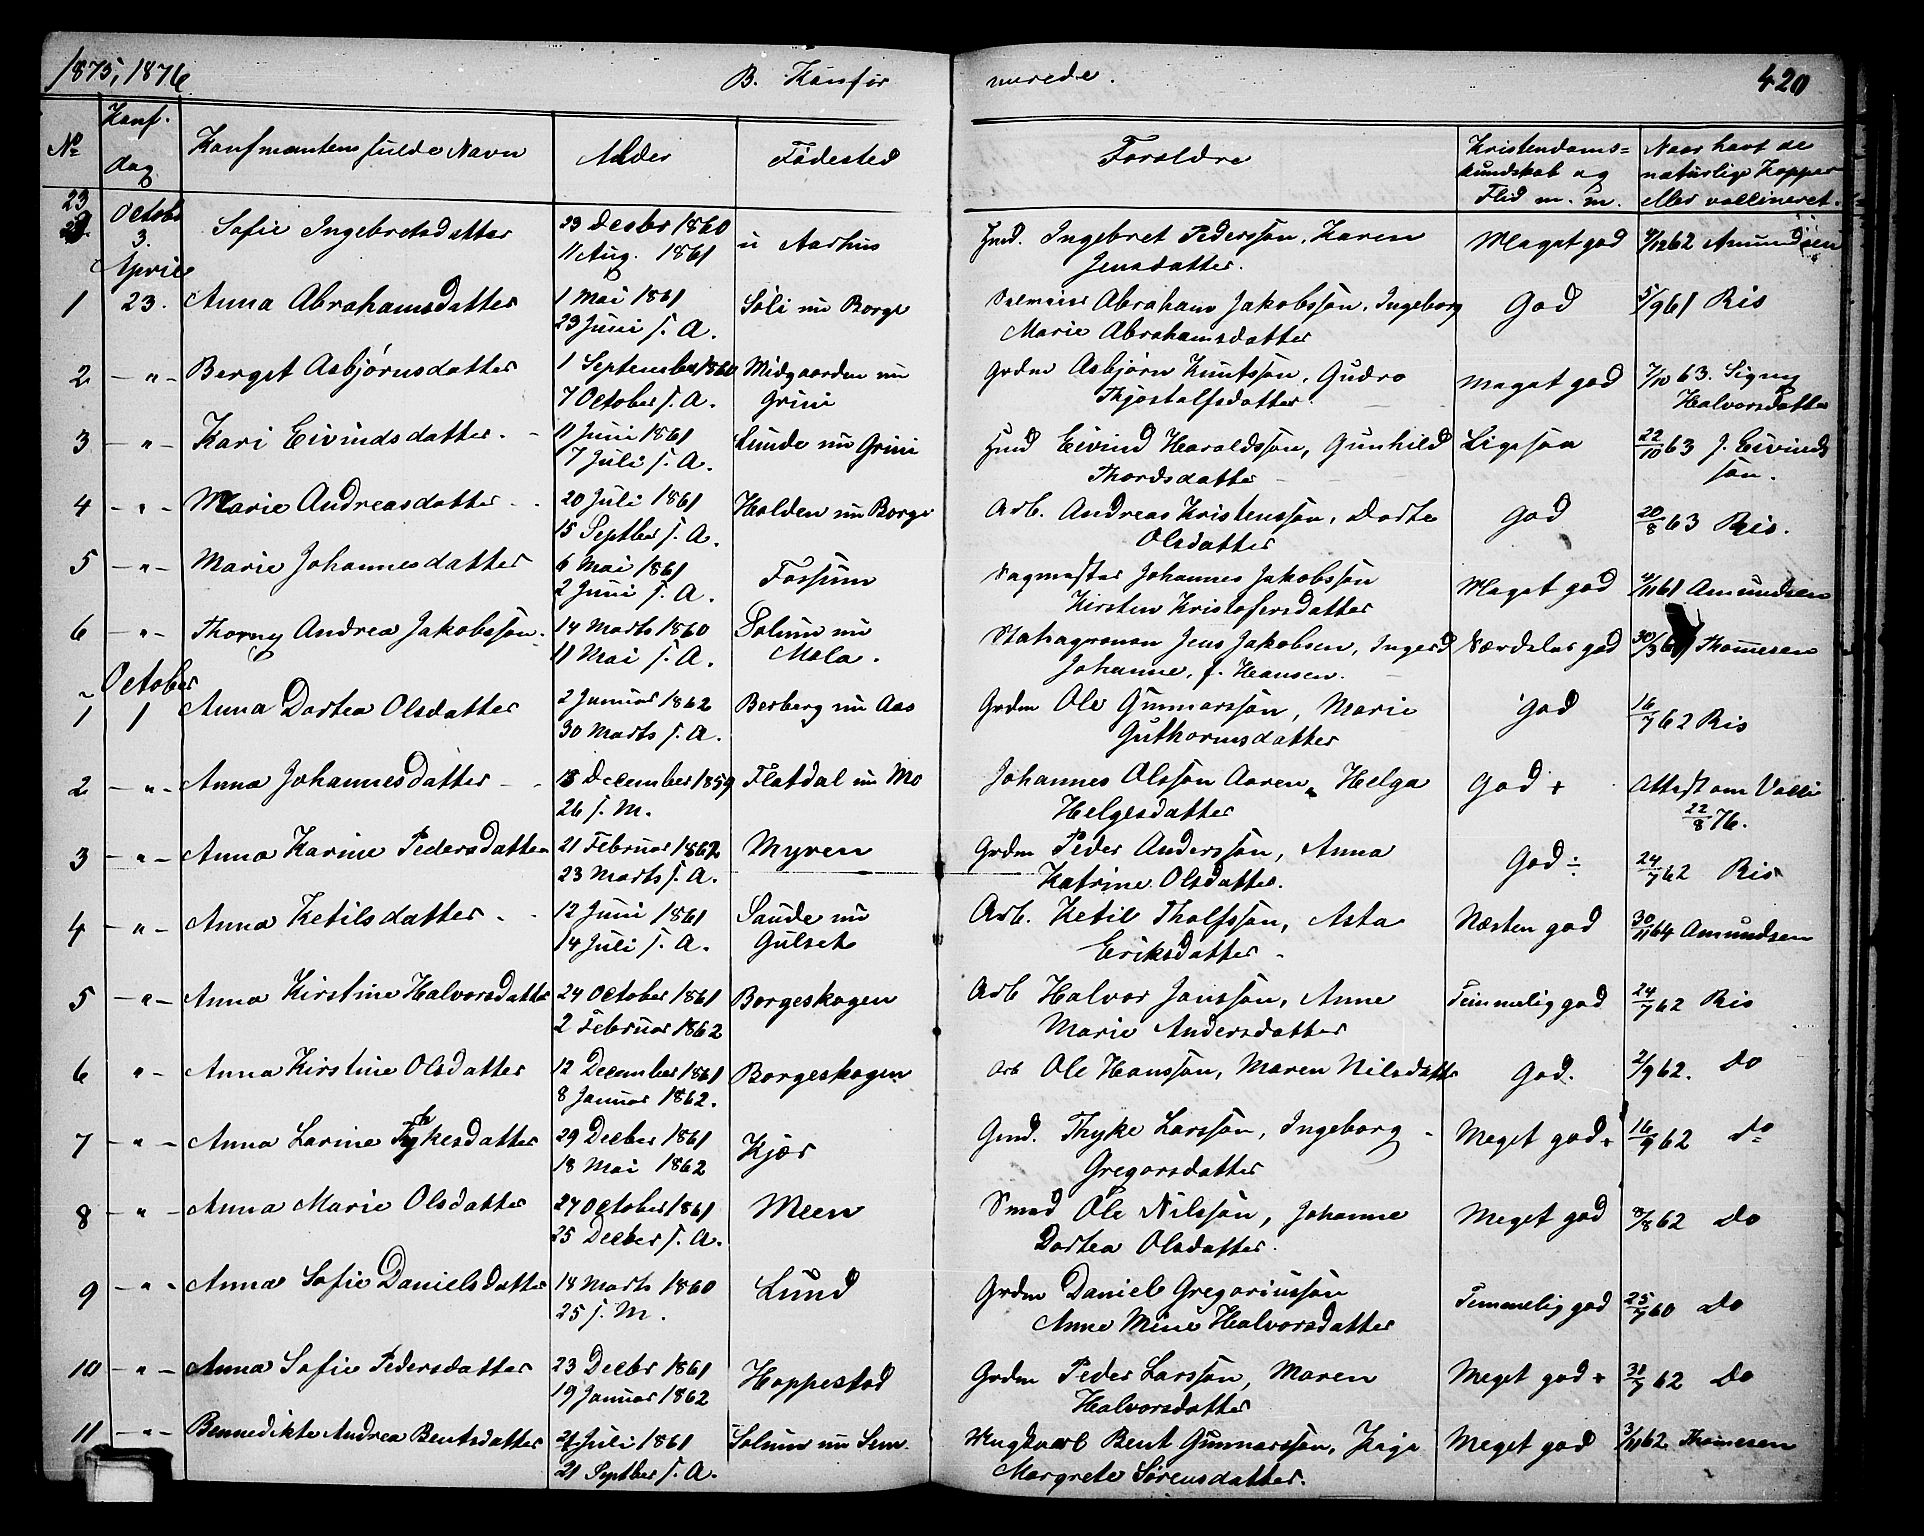 1875, 1876
B. Konfir
merede.
420
No
Konf. dag
Konfirmantens fulde Navn
Alder
Fødested
Forældre
Kristendoms= kundskab og Flid m. m.
Naar havt de naturlige Kopper eller vaccineret.
23 October 3. Sofie Ingebretsdatter 23 Decbr 1860 Aarhus Hmd. Ingebret Pedersson, Karen Meget god 4/12 62 Amundsen
11 Aug. 1861 Jensdatter.
April
1 23. Anna Abrahamsdatter 1 Mai 1861 Søli nu Borge Abraham Jakobsson, Ingeborg God 5/9 61 Ris
23 Juni s. A. Marie Abrahamsdatter
2 - " - Berget Asbjørnsdatter 1 September 1860 Midgaarden nu Grdm Asbjørn Knutsson, Gudro Meget god 7/10 63. Signy
7 October s. A. Grini Thjostolfsdatter. Halvorsdatter
3 - " - Kari Eivindsdatter. 11 Juni 1861 Lunde nu Grini Hmd Eivind Haraldsson, Gunhild Ligesom 22/10 63 J. Eivinds
7 Juli s. A. Thordsdatter son.
4 - " - Marie Andreasdatter 20 Juli 1861 Holden nu Borge Arb. Andreas Kristensson, Dorte God 20/8 63 Ris.
15 Septber s. A. Olsdatter
5 - " - Marie Johannesdatter 6 Mai 1861 Fossum Sagmester Johannes Jakobsson Meget god 4/11 61 Amundsen
2 Juni s. A. Kirsten Kristofersdatter
6 - " - Thorny Andrea Jakobsson. 14 Marts 1860 Solum nu Jens Jakobsen, Ingerd Særdeles god 30/3 Thomesen
11 Mai s. A. Mæla. Johanne, f. Hansen.
October
1 1 Anna Dortea Olsdatter 2 Januar 1862 Berberg nu Aas Grdm Ole Gunnarsson, Marie God 16/7 62 Ris
30 Marts s. A. Guthormsdatter
2 - " - Anna Johannesdatter - - 18 December 1859 Flatdal nu Mo Johannes Olsson Aaren, Helga God + Attest om Vacci
26 s. M. Helgesdatter 22/8 76.
3 - " - Anna Karine Pedersdatter 21 Februar 1862 Myren Grdm Peder Andersson, Anna God ÷ 24/7 62 Ris
23 Marts s. A. Katrine Olsdatter.
4 - " - Anna Ketilsdatter - - 12 Juni 1861 Saude nu Arb. Ketil Tholfsson, Asta Næsten god 30/11 64 Amundsen
14 Juli s. A. Gulset Eriksdatter -
5 - " - Anna Kirstine Halvorsdatter 24 October 1861 Borgeskogen Arb Halvor Jonsson, Anne Temmelig god 24/7 62 Ris
2 Februar 1862 Marie Andersdatter
6 " - Anna Kirstine Olsdatter 12 December 1861 Borgeskogen Arb Ole Hansson, Maren Nilsdatter God. 2/9 62. Do
8 Januar 1862.
7 - " - Anna Larine Thykesdatter 29 Decber 1861 Kjær Gmd. Thyke Larsson, Ingeborg - Meget god + 16/9 62 Do
18 Mai 1862 Gregorsdatter
8 - " - Anna Marie Olsdatter 27 October 1861 Meen Smed Ole Nilsson, Johanne Meget god 8/8 62 Do
25 Decber s. A. Dortea Olsdatter.
9 - " - Anna Sofie Danielsdatter 14 Marts 1860 Lund Grdm Daniel Gregoriusson Temmelig god 25/7 60 Do
25 s. M. Anne Mine Halvorsdatter
10 - " - Anna Sofie Pedersdatter 23 Decbr 1861 Hoppestad Grdm Peder Larsson, Maren Meget god + 31/7 62 Do
19 Januar 1862 Halvorsdatter
11 - " - Bennedikte Andrea Bentsdatter 21 Juli 1861 Solum nu Sem. Bent Gunnarsson, Inge Meget god 3/11 62 Thomesen
21 Septber s. A. Margrete Sørensdatter.